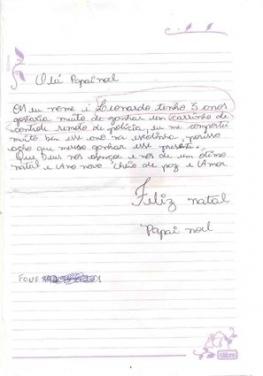 Olá Papai noel
Oi eu nome é Leonardo, tenho 5 anos
gostaria muito de ganhar um carrinho de
controle remoto de policia, eu me comportei
muito bem esse ano na escolinha, por isso
acho que mereço ganhar esse presente.
Que Deus nos abençoe e nos de um ótimo
natal e Ano novo cheio de paz e Amor
Feliz natal
Papai noel
FONE